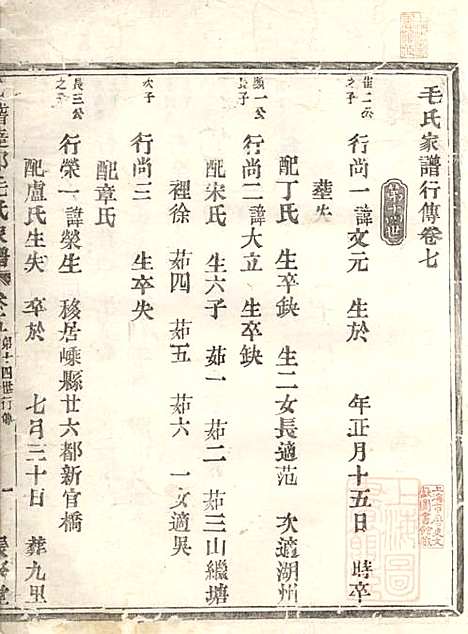 毛氏家譜行傳卷七
第十四世
崔二公之子
行尚一諱文元 生於 年正月十五日 時卒
葬失
配丁氏 生卒缺 生二女長適范 次適湖州
顯一公長子
行尚二諱大立 生卒缺
配宋氏 生六子 茹一 茹二 茹三山繼塘
裡徐 茹四 茹五 茹六 一女適吳
次子
行尚三 生卒失
配章氏
長三公之子
行榮一諱榮生 移居嵊縣廿六都新官橋
配盧氏生失 卒於 七月三十日 葬九里
毛氏家譜 卷 第十四世行傳 一 堂
上海圖書館藏